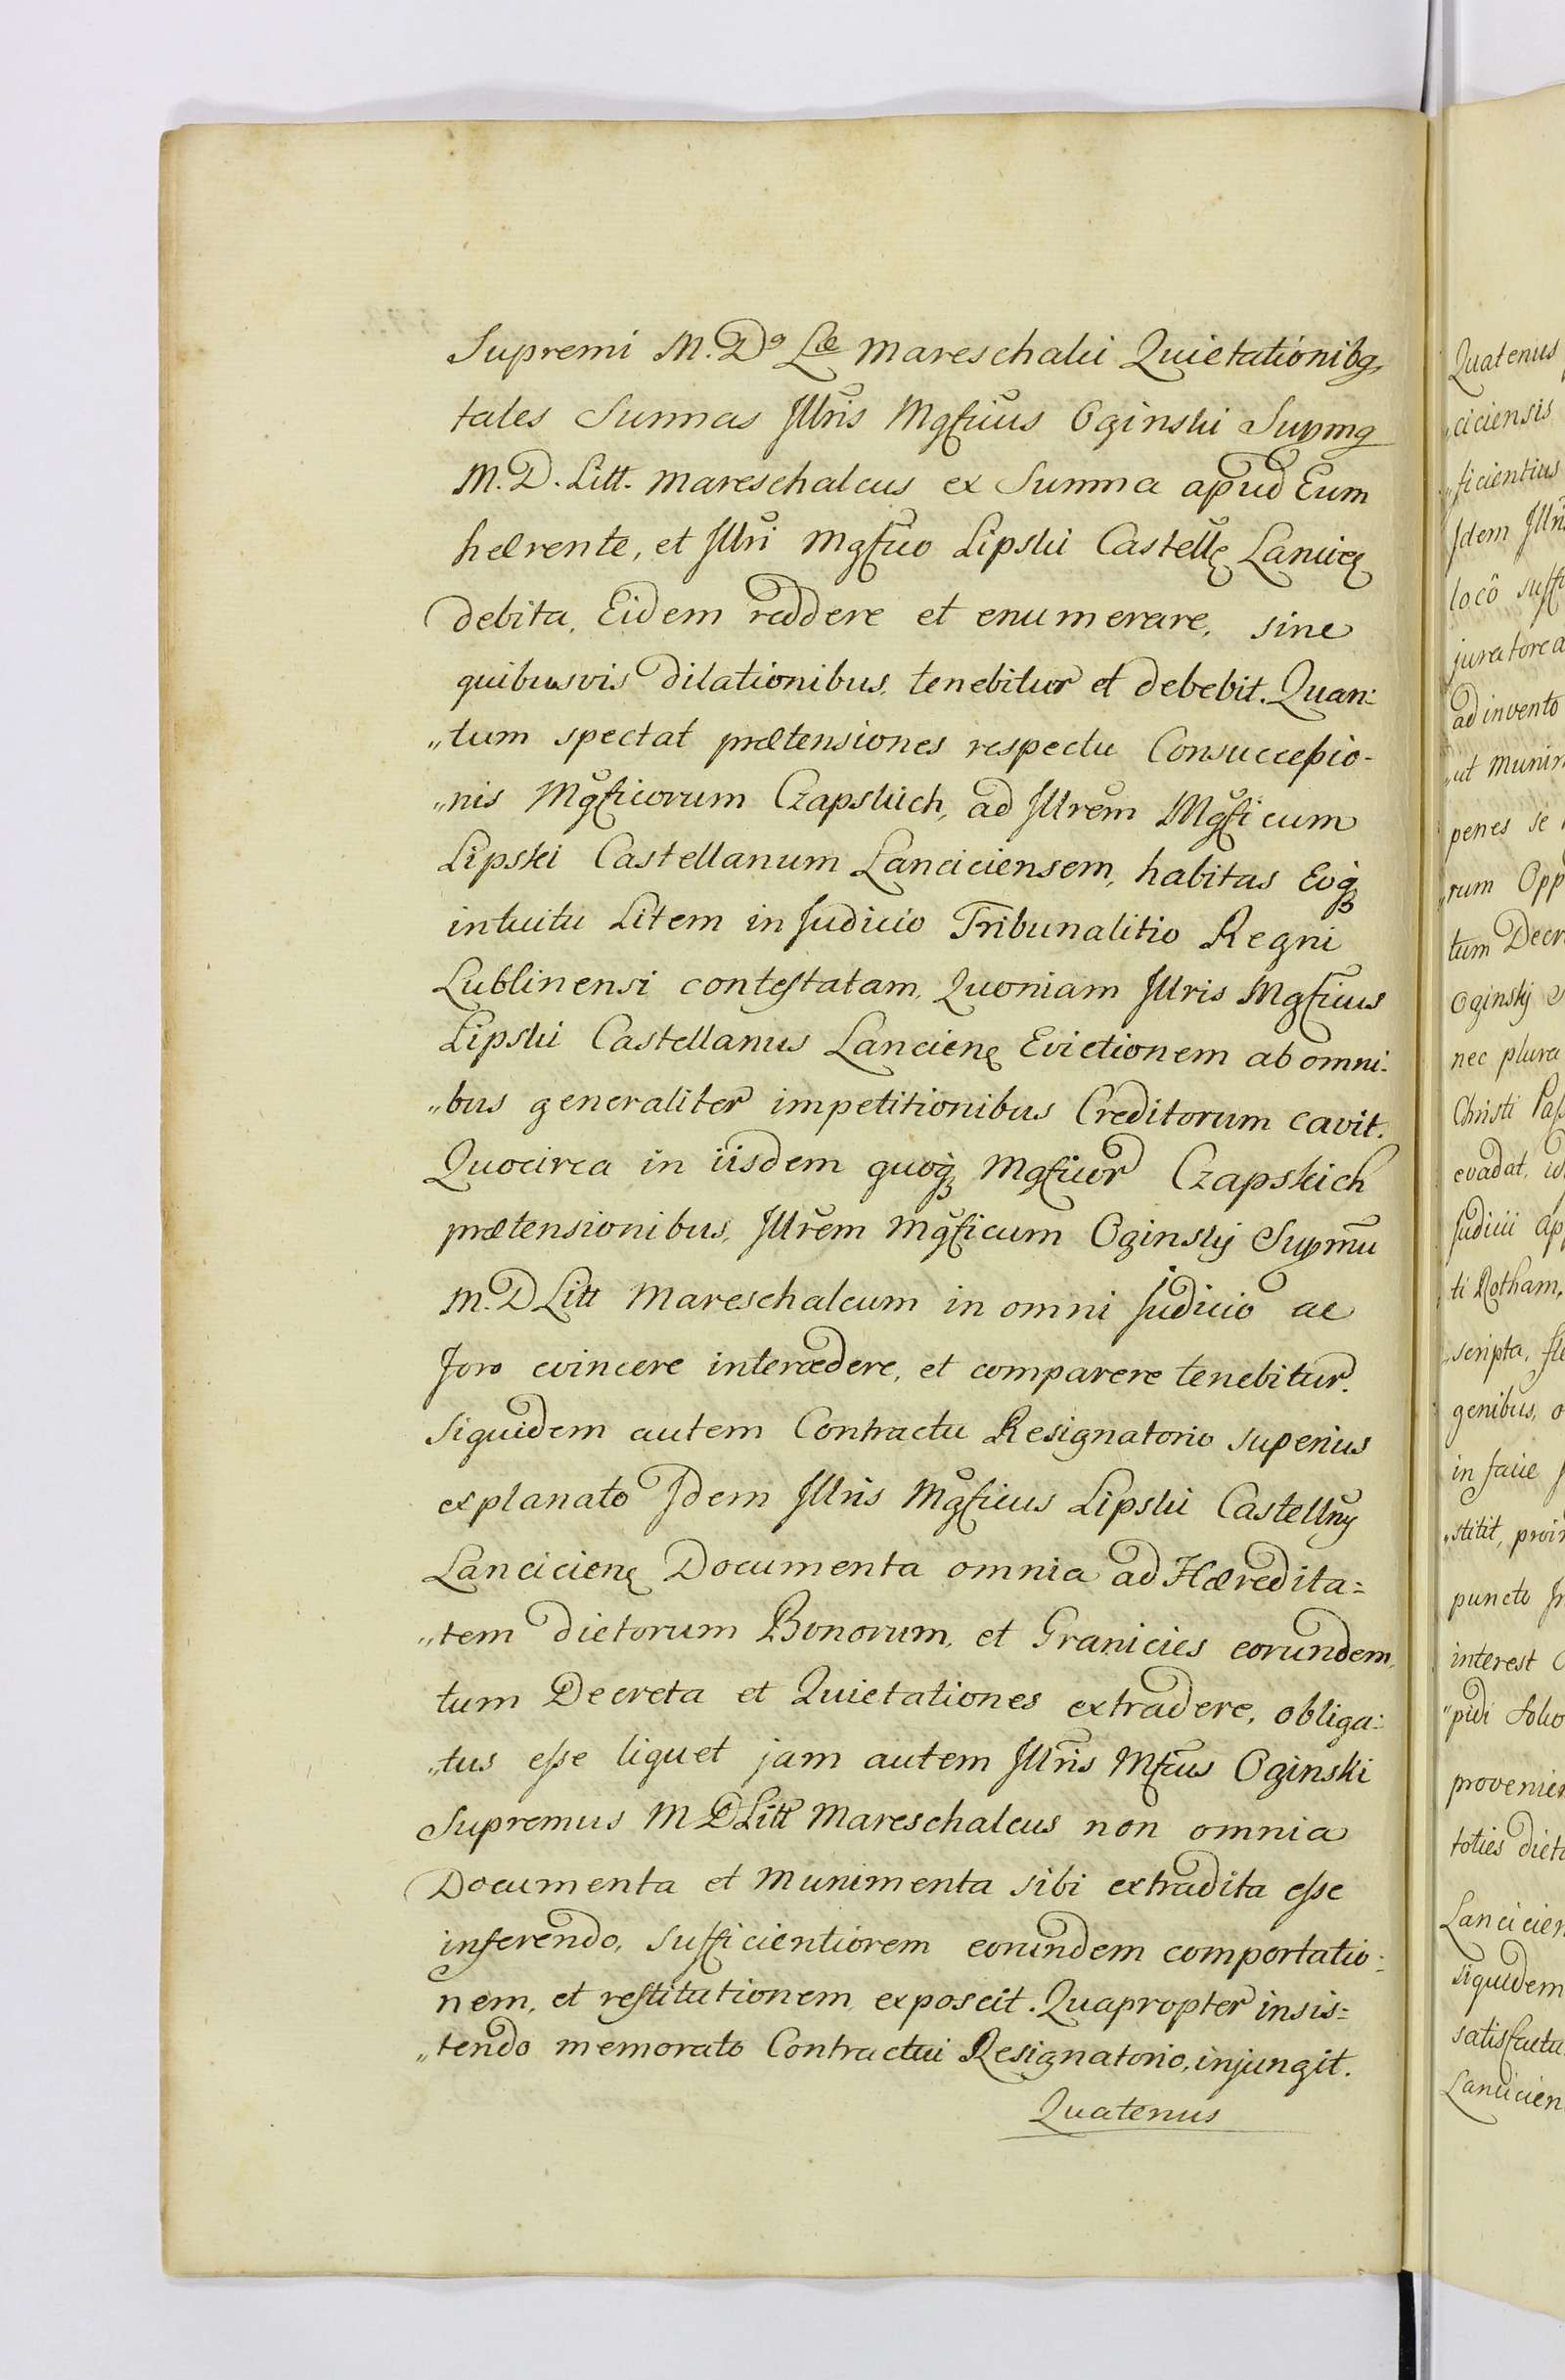 Supremi M. D. Læ Mareschalci Quietationibq
tales Summas Jllris Mgficus Oginski Supmq
M. D. Litt. Mareschalcus ex Summa apud Eum
hærente, et Jllri Mgfico Lipski Castellę Lancicę
debita, Eidem reddere et enumerare, sine
quibusvis dilationibus, tenebitur et debebit. Quan:
„tum spectat prætensiones respectu Consuccessio-
„nis Mgficorum Czapskich, ad Jllrem Mgficum
Lipski Castellanum Lanciciensem, habitas Eoq
intuitu Litem in Judicio Tribunalitio Regni
Lublinensi contestatam, Quoniam Jllris Mgficus
Lipski Castellanus Lancicienę Evictionem ab omni:
„bus generaliter impetitionibus Creditorum cavit.
Quocirca in iisdem quoq Mgficor Czapskich
prætensionibus, Jllrem Mgficum Oginskij Supmu
M. D Litt Mareschalcum in omni Judicio ac
Foro evincere intercedere, et comparere tenebitur.
Siquidem autem Contractu Resignatorio superius
explanato Jdem Jllris Mgficus Lipski Castellnq
Lancicienę Documenta omnia ad Hæredita=
„tem dictorum Bonorum, et Granicies eorundem,
tum Decreta et Quietationes extradere, obliga:
„tus esse liquet jam autem Jllris Mficus Oginski
Supremus M D Litt Mareschalcus non omnia
Documenta et Munimenta sibi extradita esse
inferendo, sufficientiorem eorundem comportatio:
nem, et restitutionem exposcit. Quapropter insis=
„tendo memorato Contractui Resignatorio, injungit.
Quatenus
Quatenus
„ciciensis
„ficientius
Jdem Jllris
locô suffi
ad invento
„ut Munim
penes se
„rum Opp
tum Decr
Oginskij
nec plura
Christi Pass
evadat,
Judicii ap
ti Rotham,
„scripta, fle
genibus, o
in facie
„stitit, proin
puncto
interest
„pidi
provenien
toties dict
Lancicien
siquidem
satisfactu
Lancicien